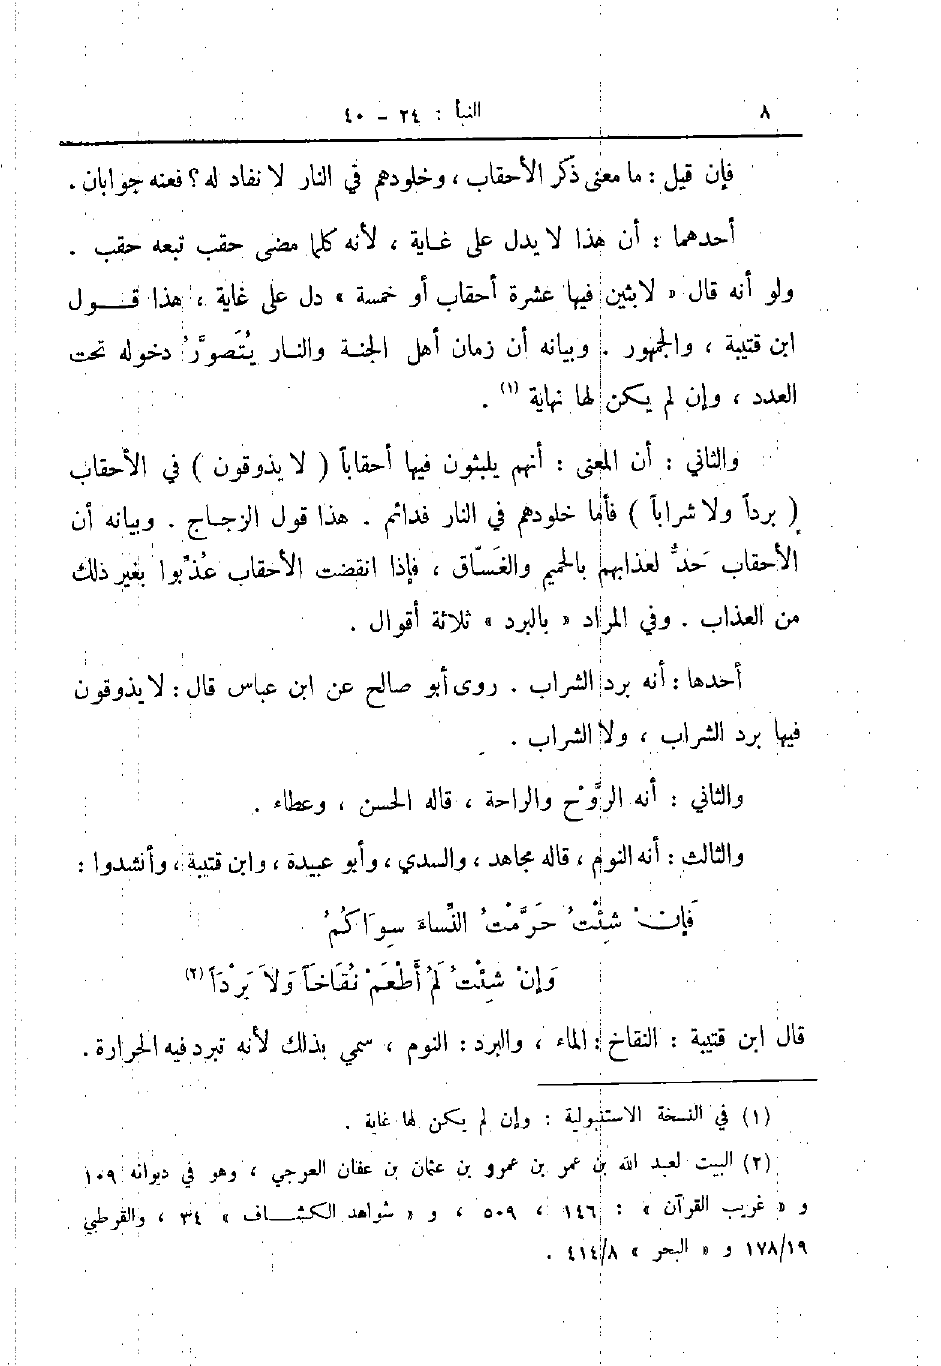 ٨
النبأ : ٢٤ – ٤٠
فإن قيل : ما معنى ذكر الأحقاب ، وخلودهم في النار لا نفاد له ؟ فعنه جوابان .
أحدهما : أن هذا لا يدل على غاية ، لأنه كلما مضى حقب تبعه حقب .
ولو أنه قال « لابثين فيها عشرة أحقاب أو خمسة » دل على غاية ، هذا قول
ابن قتيبة ، والجمهور . وبيانه أن زمان أهل الجنة والنار يُتَصوَّرُ دخوله تحت
العدد ، وإن لم يكن لها نهاية (١) .
والثاني : أن المعنى : أنهم يلبثون فيها أحقاباً ( لا يذوقون ) في الأحقاب
( برداً ولا شراباً ) فأما خلودهم في النار فدائم . هذا قول الزجاج . وبيانه أن
الأحقاب حَدٌّ لعذابهم بالحميم والغَسَّاق ، فإذا انقضت الأحقاب عُذِّبوا بغير ذلك
من العذاب . وفي المراد « بالبرد » ثلاثة أقوال .
أحدها : أنه برد الشراب . روى أبو صالح عن ابن عباس قال : لا يذوقون
فيها برد الشراب ، ولا الشراب .
والثاني : أنه الرَّوْح والراحة ، قاله الحسن ، وعطاء .
والثالث : أنه النوم ، قاله مجاهد ، والسدي ، وأبو عبيدة ، وابن قتيبة ، وأنشدوا :
فَإِنْ شِئْتُ حَرَّمْتُ النِّساءَ سِوَاكُمُ
وَإِنْ شِئْتُ لَمْ أَطْعَمْ نُقَاخَاً وَلاَ بَرْدَاً (٢)
قال ابن قتيبة : النقاخ : الماء ، والبرد : النوم ، سمي بذلك لأنه تبرد فيه الحرارة .
(١) في النسخة الاستنبولية : وإن لم يكن لها غاية .
(٢) البيت لعبد الله بن عمر بن عمرو بن عثمان بن عفان العرجي ، وهو في ديوانه ١٠٩
و « غريب القرآن » : ١٤٦ ، ٥٠٩ ، و « شواهد الكشاف » ٣٤ ، والقرطبي
١٧٨/١٩ و « البحر » ٤١٤/٨ .